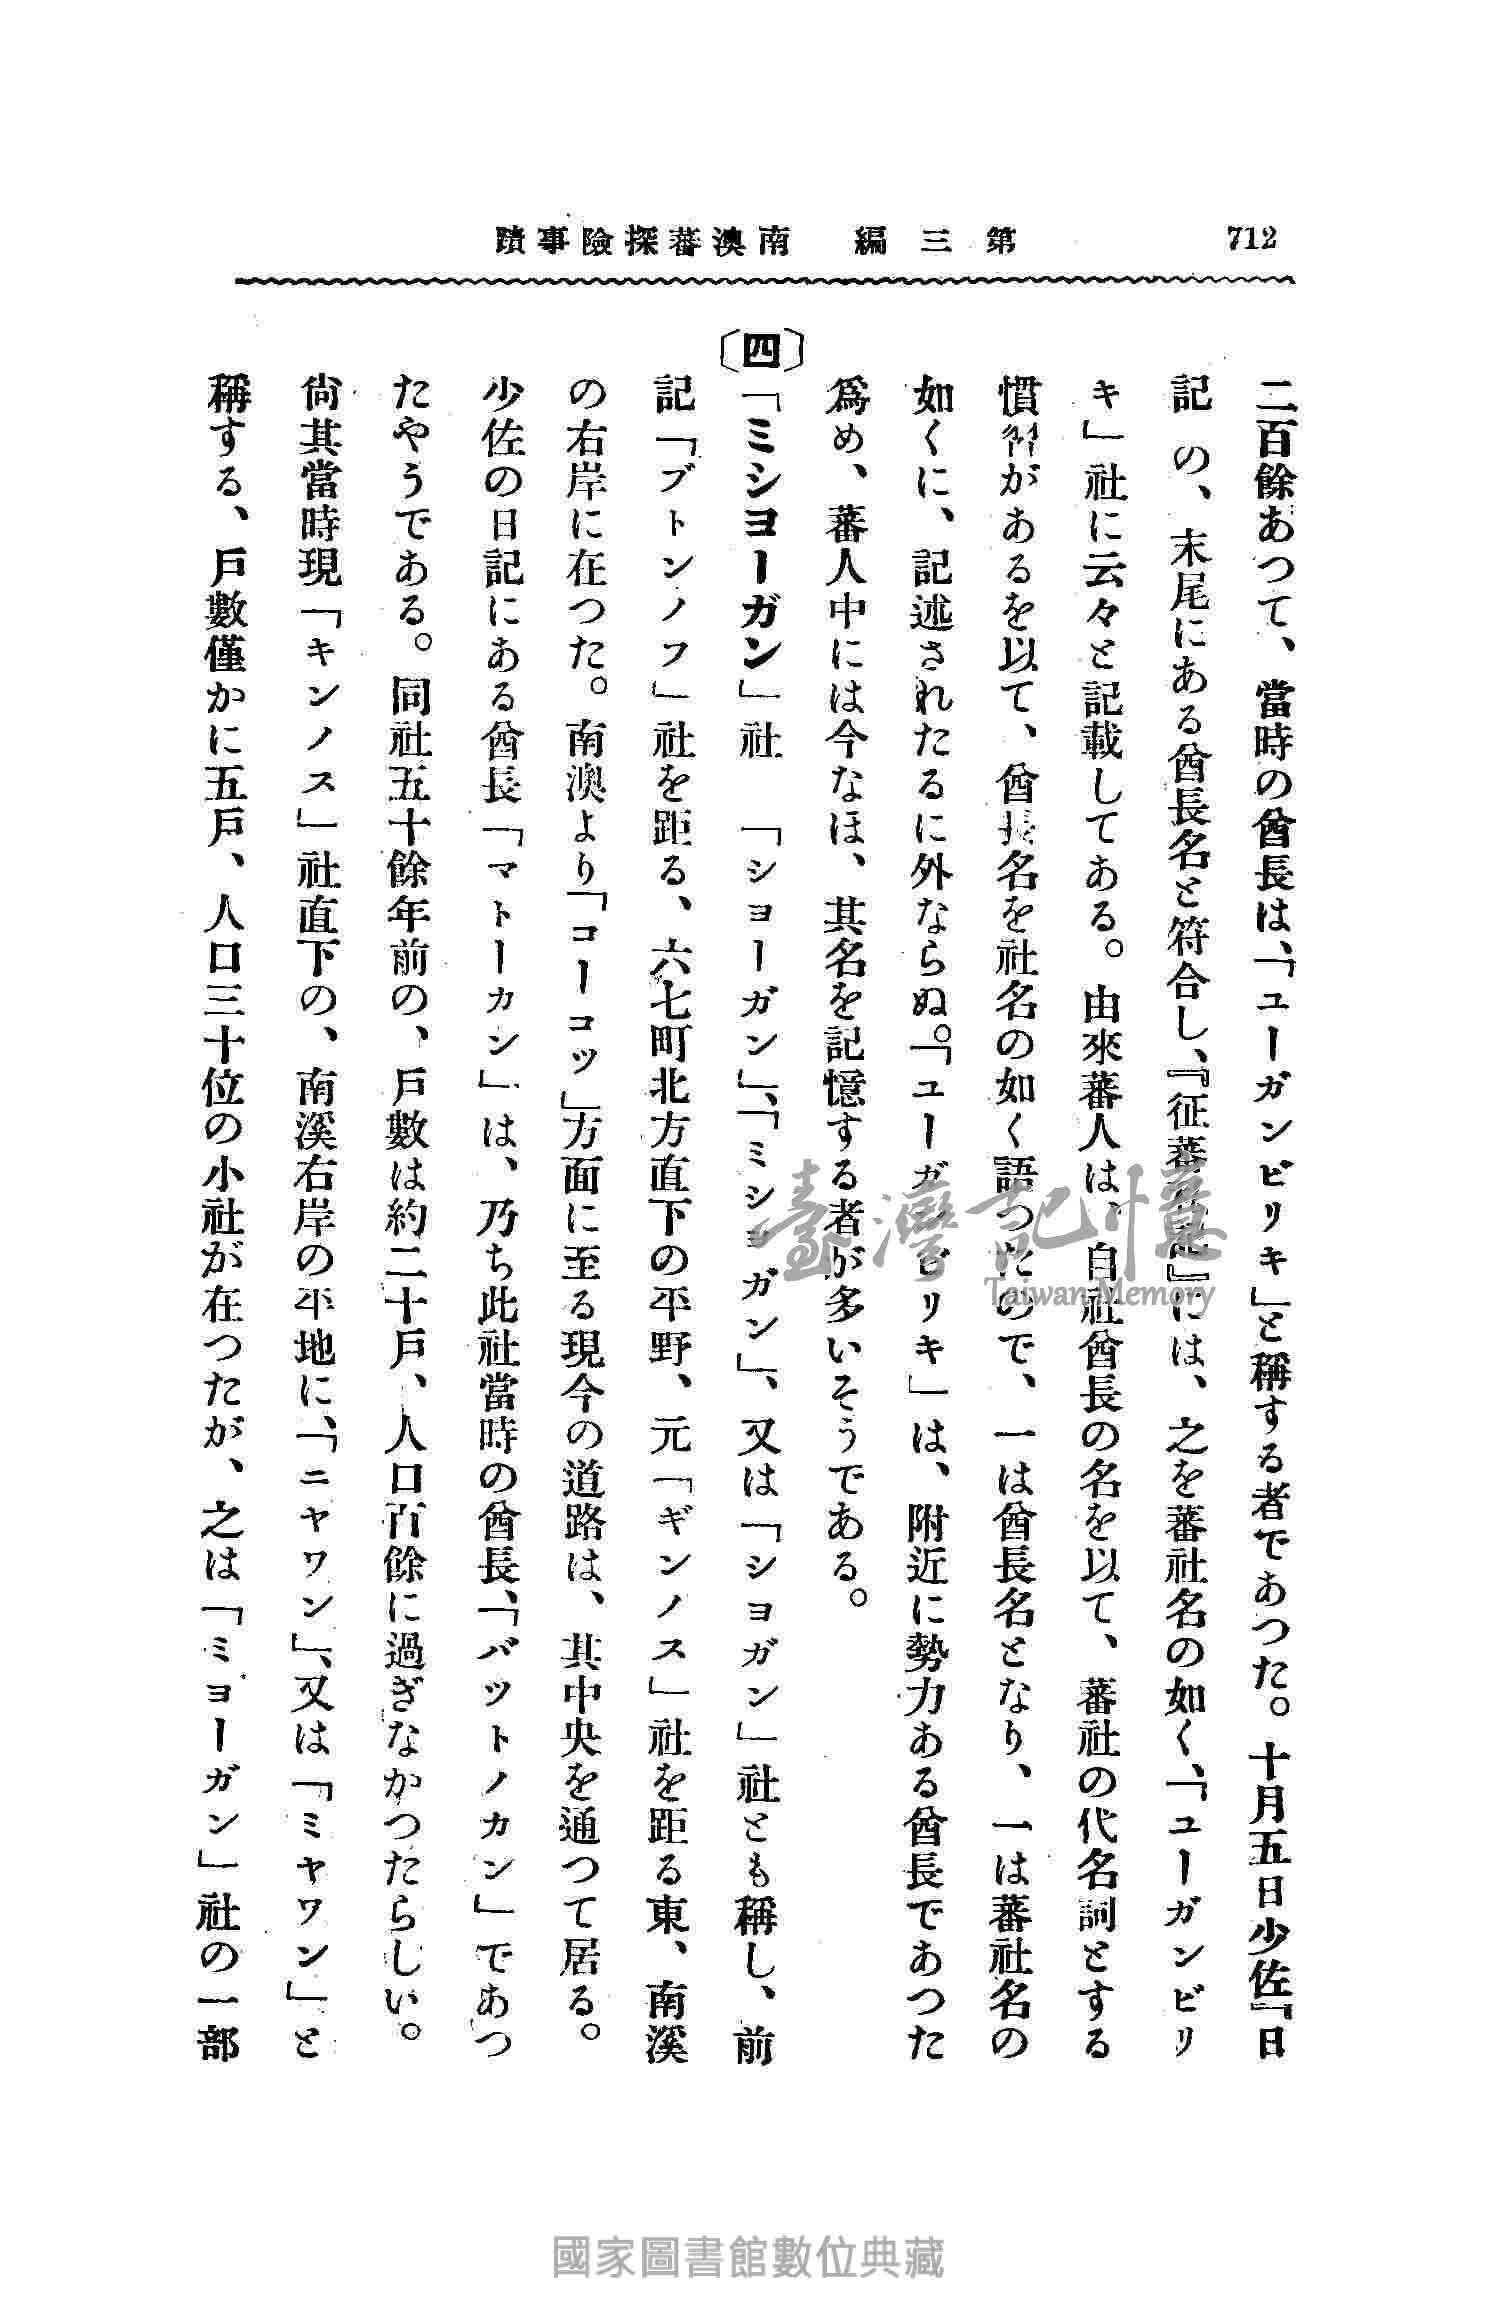 712
第三編　南澳蕃探險事蹟
二百餘あつて、當時の酋長は、「ユーガンビリキ」と稱する者であつた。十月五日少佐『日
記の、末尾にある酋長名と符合し、『征蕃　　』には、之を蕃社名の如く、「ユーガンビリ
キ」社に云々と記載してある。由來蕃人は、自社酋長の名を以て、蕃社の代名詞とする
慣習があるを以て、酋長名を社名の如く語つたので、一は酋長名となり、一は蕃社名の
如くに、記述されたるに外ならぬ。「ユーガンビリキ」は、附近に勢力ある酋長であつた
爲め、蕃人中には今なほ、其名を記憶する者が多いそうである。
〔四〕「ミシヨーガン」社　「シヨーガン」、「ミシヨガン」、又は「シヨガン」社とも稱し、前
記「ブトンノフ」社を距る、六七町北方直下の平野、元「ギンノス」社を距る東、南溪
の右岸に在つた。南澳より「コーコツ」方面に至る現今の道路は、其中央を通つて居る。
少佐の日記にある酋長「マトーカン」は、乃ち此社當時の酋長、「バツトノカン」であつ
たやうである。同社五十餘年前の、戶數は約二十戶、人口百餘に過ぎなかつたらしい。
尙其當時現「キンノス」社直下の、南溪右岸の平地に、「ニヤワン」、又は「ミヤワン」と
稱する、戶數僅かに五戶、人口三十位の小社が在つたが、之は「ミヨーガン」社の一部
臺灣記憶
Taiwan Memory
國家圖書館數位典藏